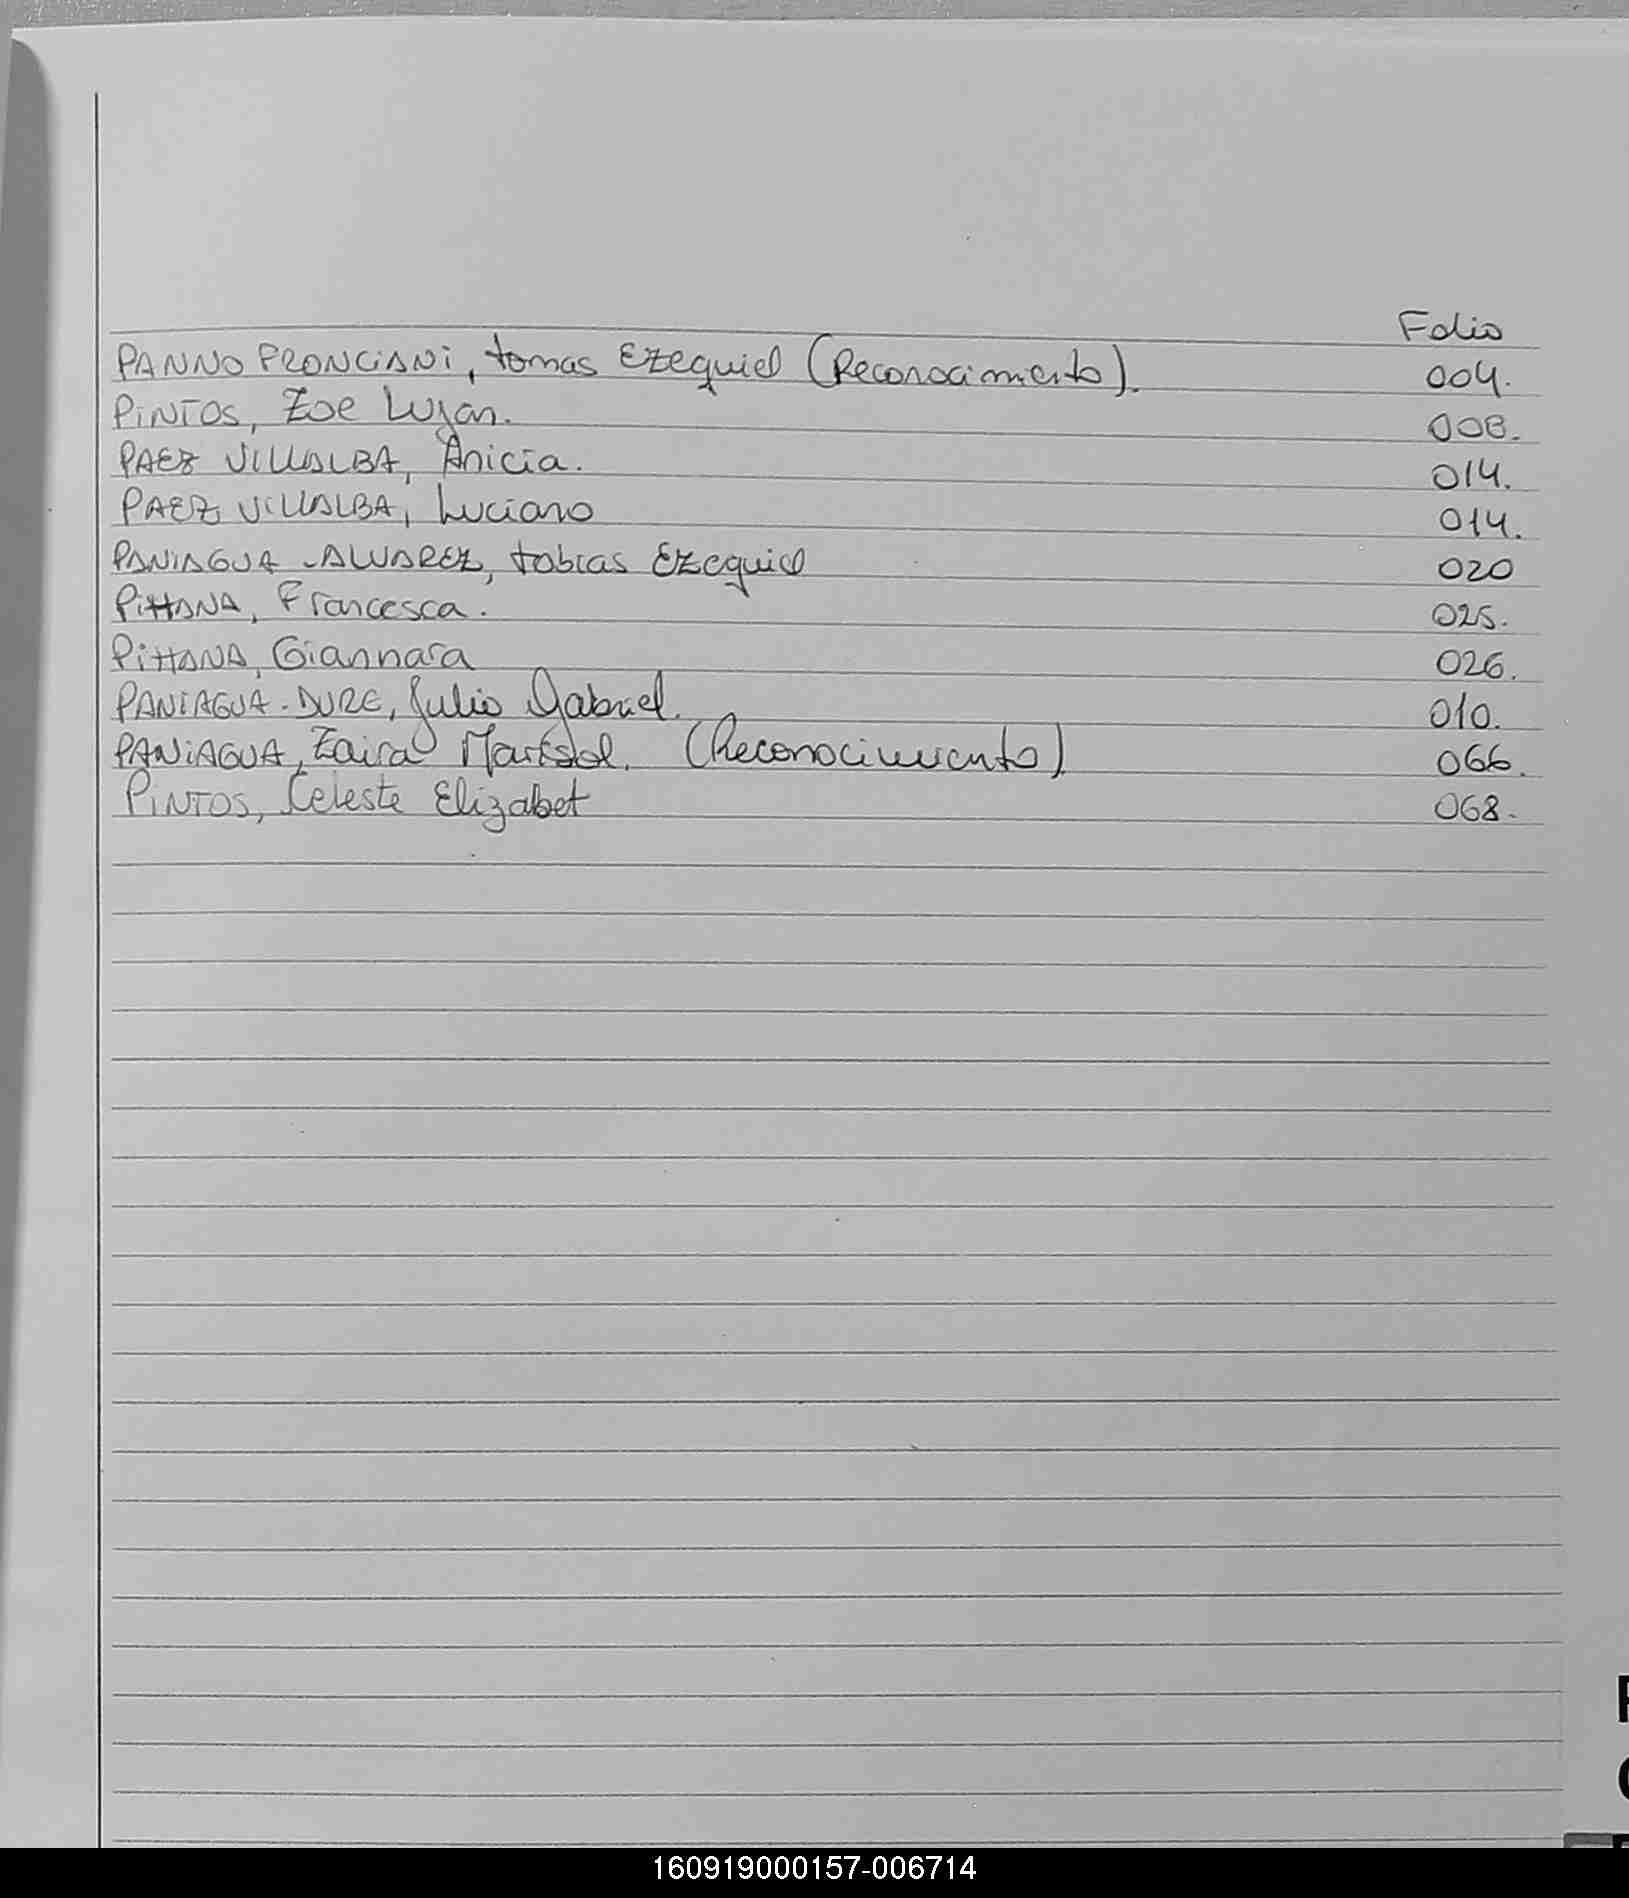 Folio
PANNO FRONCIANI, tomas Ezequiel (Reconocimiento). 004.
PINTOS, Zoe Lujan. 008.
PAEZ VILLALBA, Anicia. 014.
PAEZ VILLALBA, Luciano 014.
PANIAGUA -ALVAREZ, tobias Ezequiel 020
PITTANA, Francesca. 025.
PITTANA, Giannara 026.
PANIAGUA-DURE, Julio Gabriel. 010.
PANIAGUA, Zaira Marisol. (Reconocimiento) 066.
PINTOS, Celeste Elizabet 068.
160919000157-006714